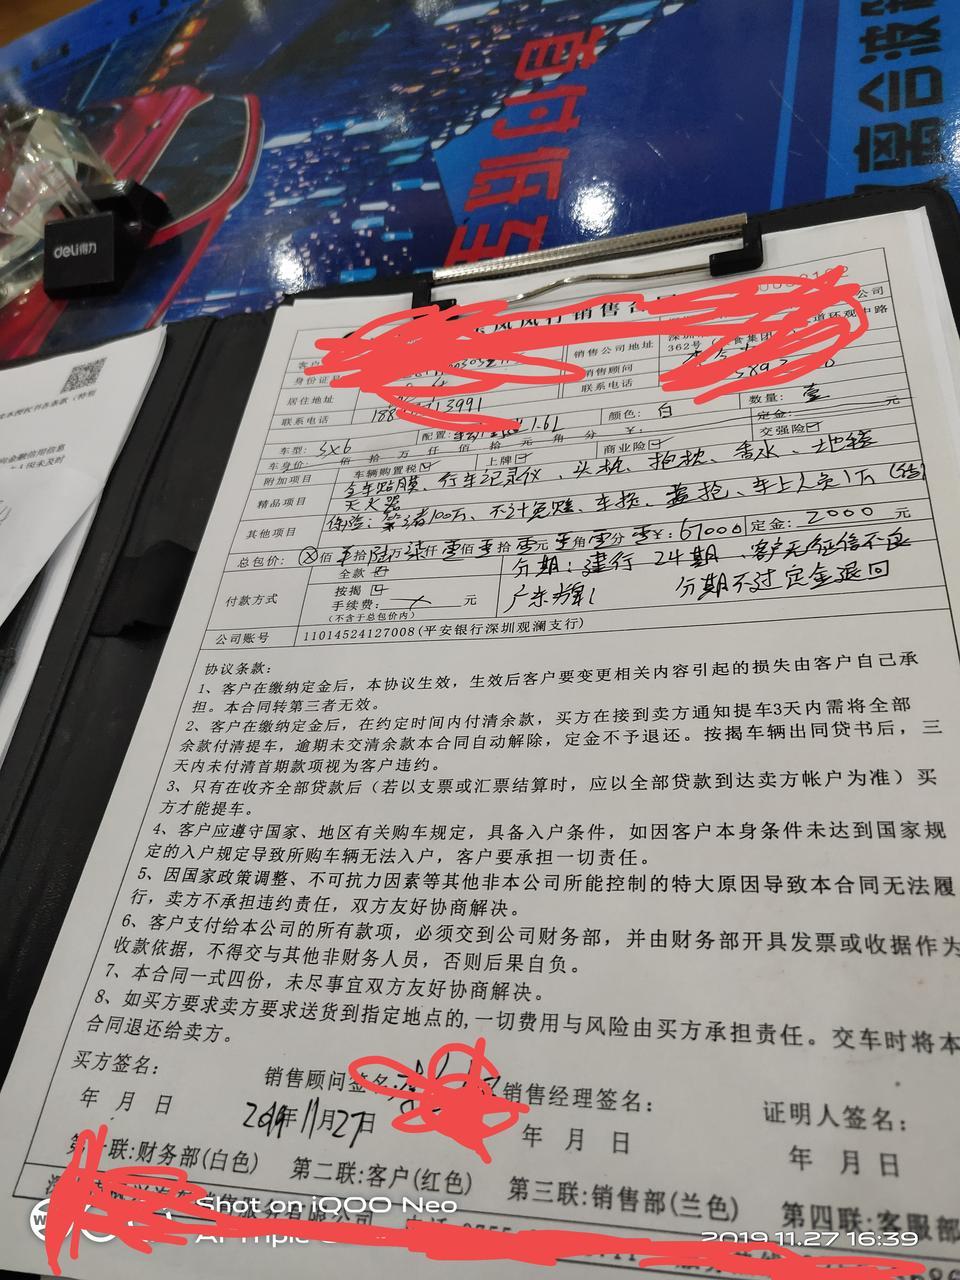 首付低至
离合液
deli得力
东风风行销售合同
公司
销售公司地址
道环观中路
362号
身份证号
销售顾问
居住地址
联系电话
联系电话
车型: SX6
配置:
1.6L
颜色: 白
数量: 壹
车身价: 佰 拾 万 仟 佰 拾 元 角 分 ¥:
定金: 元
附加项目 车辆购置税☑ 上牌☑ 商业险☑ 交强险☑
精品项目 全车贴膜、行车记录仪、头枕、抱枕、香水、地毯
灭火器
其他项目 保险: 第三者100万、不计免赔、车损、盗抢、车上人员1万
总包价: ⊗佰 拾陆万柒仟零佰零拾零元零角零分 ¥: 67000 定金: 2000 元
付款方式
全款
按揭☑
手续费: 元
(不含于总包价内)
分期: 建行 24期 、客户无征信不良
分期不过定金退回
公司账号 11014524127008(平安银行深圳观澜支行)
协议条款:
1、客户在缴纳定金后，本协议生效，生效后客户要变更相关内容引起的损失由客户自己承
担。本合同转第三者无效。
2、客户在缴纳定金后，在约定时间内付清余款，买方在接到卖方通知提车3天内需将全部
余款付清提车，逾期未交清余款本合同自动解除，定金不予退还。按揭车辆出同贷书后，三
天内未付清首期款项视为客户违约。
3、只有在收齐全部贷款后（若以支票或汇票结算时，应以全部贷款到达卖方帐户为准）买
方才能提车。
4、客户应遵守国家、地区有关购车规定，具备入户条件，如因客户本身条件未达到国家规
定的入户规定导致所购车辆无法入户，客户要承担一切责任。
5、因国家政策调整、不可抗力因素等其他非本公司所能控制的特大原因导致本合同无法履
行，卖方不承担违约责任，双方友好协商解决。
6、客户支付给本公司的所有款项，必须交到公司财务部，并由财务部开具发票或收据作为
收款依据，不得交与其他非财务人员，否则后果自负。
7、本合同一式四份，未尽事宜双方友好协商解决。
8、如买方要求卖方要求送货到指定地点的,一切费用与风险由买方承担责任。交车时将本
合同退还给卖方。
买方签名: 销售顾问签名: 销售经理签名: 证明人签名:
年 月 日 2019年11月27日 年 月 日 年 月 日
第一联:财务部(白色) 第二联:客户(红色) 第三联:销售部(兰色) 第四联:客服部
Shot on iQOO Neo
AI Triple
2019.11.27 16:39